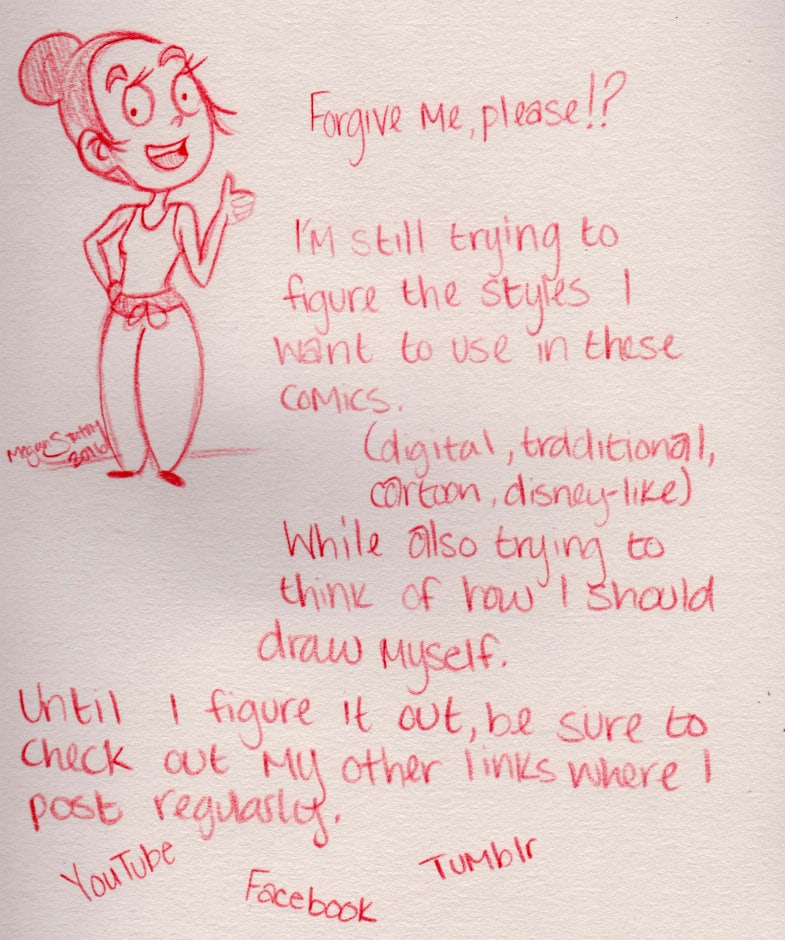 Forgive me, please!?
I'm still trying to
figure the styles I
want to use in these
comics.
(digital, traditional,
cartoon, disney-like)
While also trying to
think of how I should
draw myself.
Until I figure it out, be sure to
check out my other links where I
post regularly.
YouTube
Facebook
Tumblr
Megan
2016